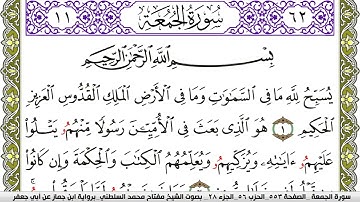 ١١ سُورَةُ الجُمُعَةِ ٦٢
بِسْمِ اللَّهِ الرَّحْمَٰنِ الرَّحِيمِ
يُسَبِّحُ لِلَّهِ مَا فِي السَّمَٰوَٰتِ وَمَا فِي الْأَرْضِ الْمَلِكِ الْقُدُّوسِ الْعَزِيزِ
الْحَكِيمِ ١ هُوَ الَّذِي بَعَثَ فِي الْأُمِّيِّـۧنَ رَسُولًا مِّنْهُمُ يَتْلُوا
عَلَيْهِمُ ءَايَٰتِهِ وَيُزَكِّيهِمُ وَيُعَلِّمُهُمُ الْكِتَٰبَ وَالْحِكْمَةَ وَإِن كَانُوا
سورة الجمعة _الصفحة ٥٥٣_ الحزب ٥٦_ الجزء ٢٨_ بصوت الشيخ مفتاح محمد السلطني_ برواية ابن جماز عن أبي جعفر